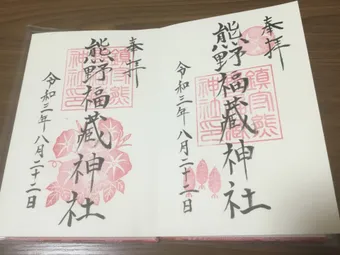 奉拝
熊野福藏神社
令和三年八月二十二日
奉拝
熊野福藏神社
令和三年八月二十二日